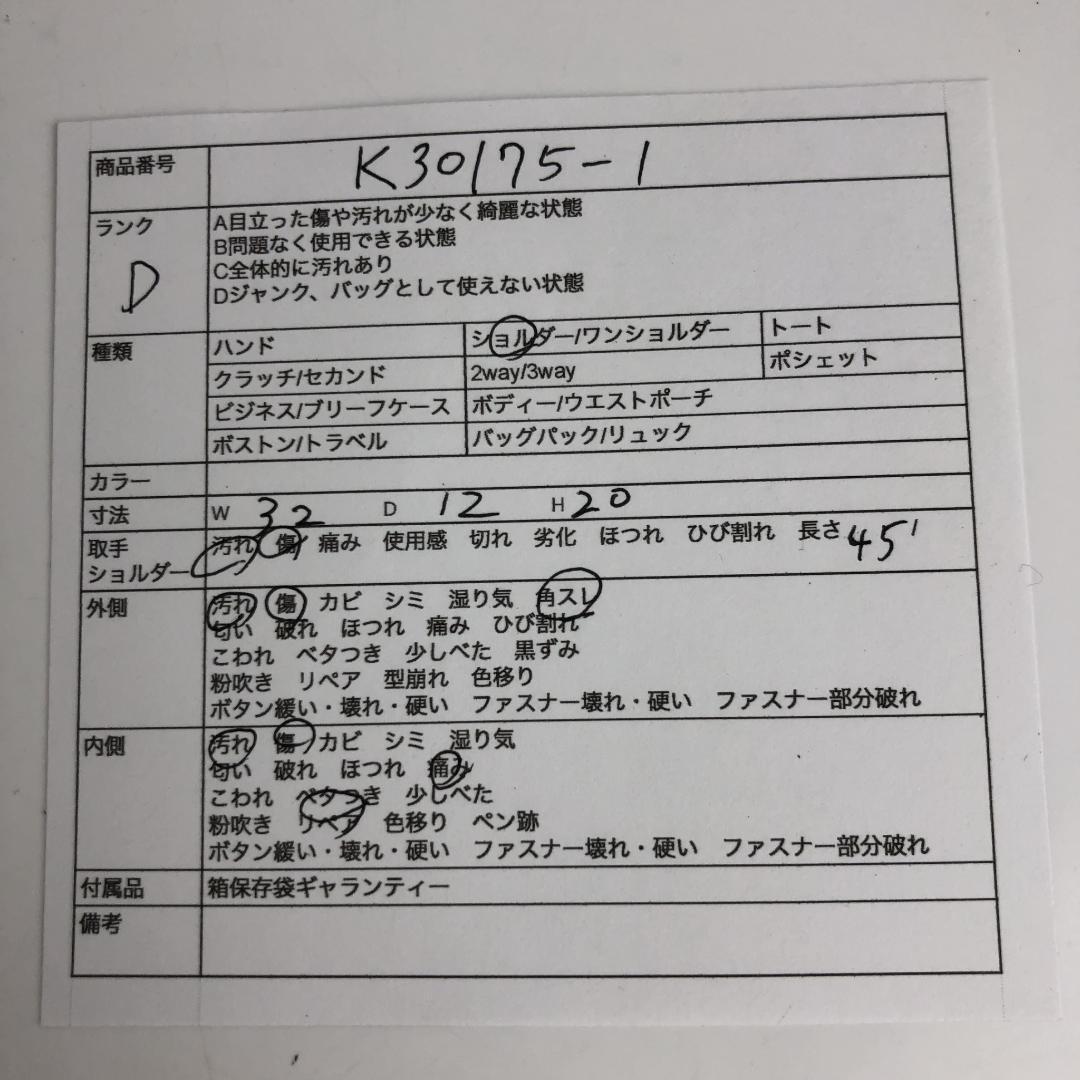 商品番号 K30175-1
ランク A目立った傷や汚れが少なく綺麗な状態
B問題なく使用できる状態
D C全体的に汚れあり
Dジャンク、バッグとして使えない状態
種類 ハンド ショルダー/ワンショルダー トート
クラッチ/セカンド 2way/3way ポシェット
ビジネス/ブリーフケース ボディー/ウエストポーチ
ボストン/トラベル バッグパック/リュック
カラー
寸法 W 32 D 12 H 20
取手 汚れ 傷 痛み 使用感 切れ 劣化 ほつれ ひび割れ 長さ 45
ショルダー
外側 汚れ 傷 カビ シミ 湿り気 角スレ
匂い 破れ ほつれ 痛み ひび割れ
こわれ ベタつき 少しべた 黒ずみ
粉吹き リペア 型崩れ 色移り
ボタン緩い・壊れ・硬い ファスナー壊れ・硬い ファスナー部分破れ
内側 汚れ 傷 カビ シミ 湿り気
匂い 破れ ほつれ 痛み
こわれ ベタつき 少しべた
粉吹き リペア 色移り ペン跡
ボタン緩い・壊れ・硬い ファスナー壊れ・硬い ファスナー部分破れ
付属品 箱保存袋ギャランティー
備考